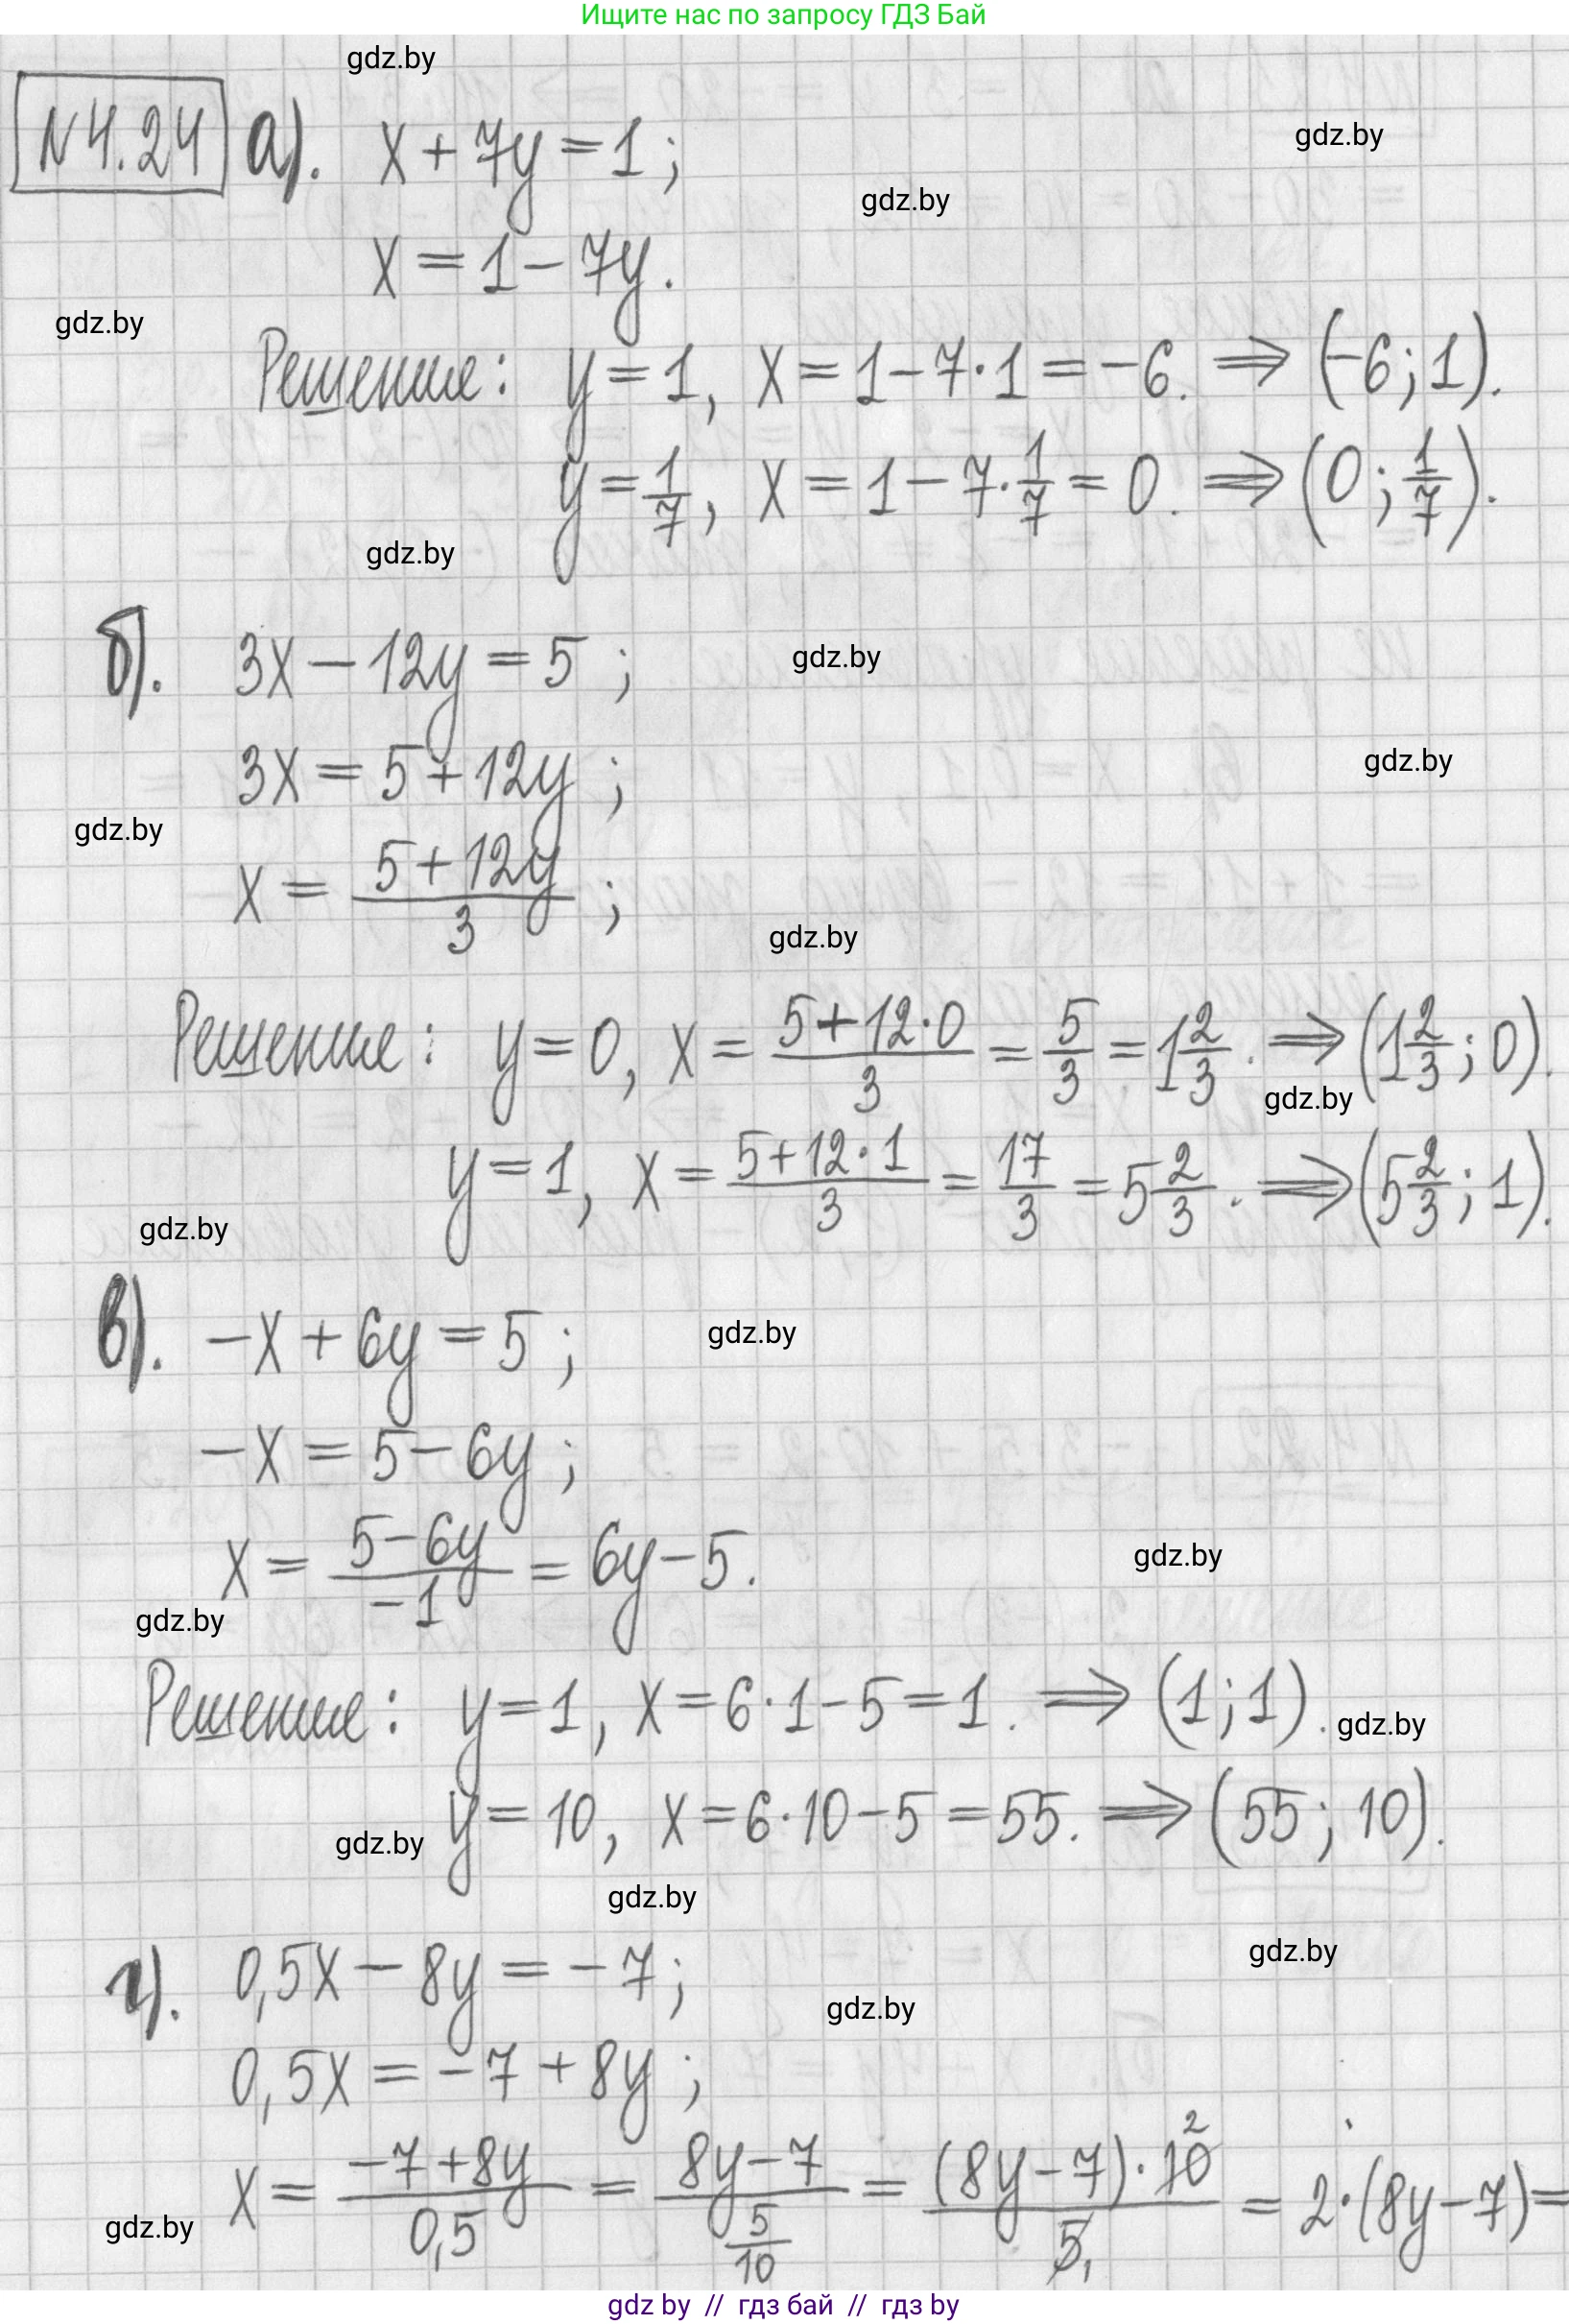 Ищите нас по запросу ГДЗ Бай
gdz.by
№4.24 а). x + 7y = 1;
gdz.by
gdz.by
x = 1 − 7y.
gdz.by
Решение: y = 1, x = 1 − 7·1 = −6. ⇒ (−6; 1).
y = 1/7, x = 1 − 7·1/7 = 0. ⇒ (0; 1/7).
gdz.by
б). 3x − 12y = 5;
gdz.by
3x = 5 + 12y;
gdz.by
gdz.by
x = (5 + 12y)/3;
gdz.by
Решение: y = 0, x = (5 + 12·0)/3 = 5/3 = 1 2/3. ⇒ (1 2/3; 0).
gdz.by
y = 1, x = (5 + 12·1)/3 = 17/3 = 5 2/3. ⇒ (5 2/3; 1).
gdz.by
в). −x + 6y = 5;
gdz.by
−x = 5 − 6y;
x = (5 − 6y)/(−1) = 6y − 5.
gdz.by
gdz.by
Решение: y = 1, x = 6·1 − 5 = 1. ⇒ (1; 1).
gdz.by
y = 10, x = 6·10 − 5 = 55. ⇒ (55; 10).
gdz.by
gdz.by
г). 0,5x − 8y = −7;
gdz.by
gdz.by
0,5x = −7 + 8y;
x = (−7 + 8y)/0,5 = (8y − 7)/(5/10) = ((8y − 7)·10 2)/5 1 = 2·(8y − 7) =
gdz.by
gdz by // гдз бай // гдз by